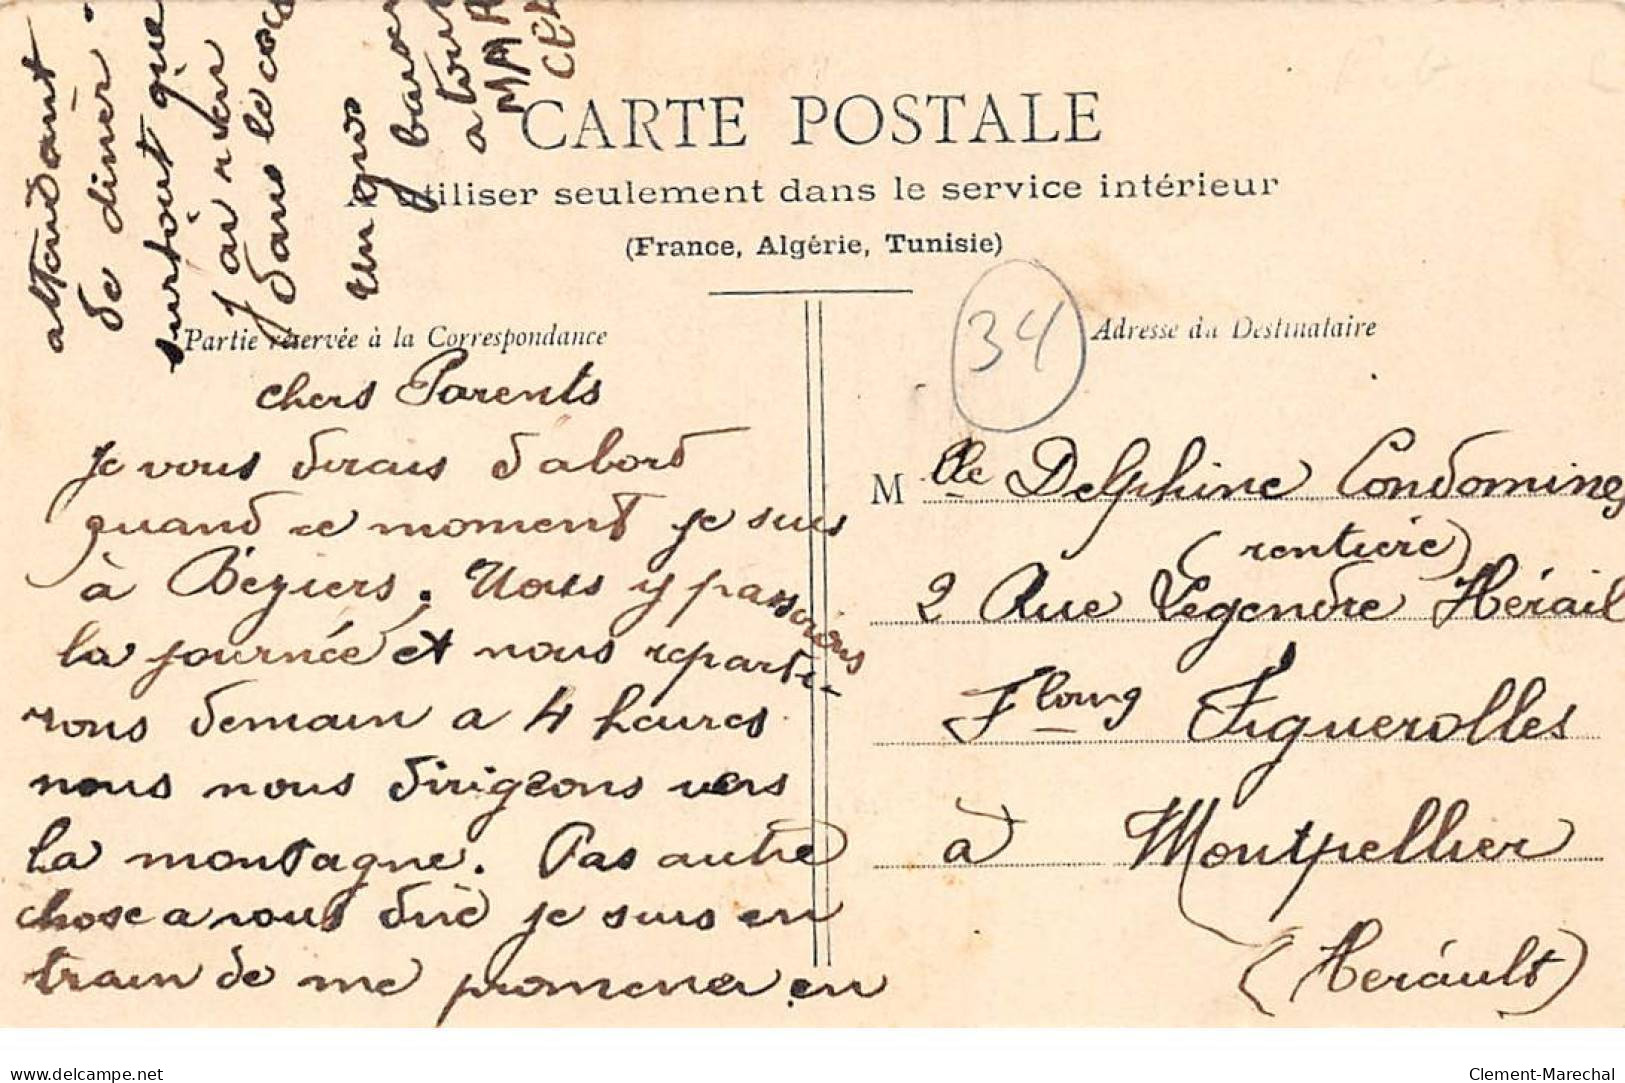 CARTE POSTALE
A utiliser seulement dans le service intérieur
(France, Algérie, Tunisie)
Partie réservée à la Correspondance
Adresse du Destinataire
34
chers Parents
Je vous dirais d'abord
quand ce moment je suis
à Béziers. Nous y passerons
la journée et nous reparti-
rons demain a 4 heures
nous nous dirigeons vers
la montagne. Pas autre
chose a vous dire je suis en
train de me promener en
attandant
de diner.
surtout que
j'ai rien
dans le
un gros
a tous
M lle Delphine Condomines
(rentière)
2 Rue Legendre Hérail
Fbourg Figuerolles
à Montpellier
(Herault)
www.delcampe.net
Clement-Marechal